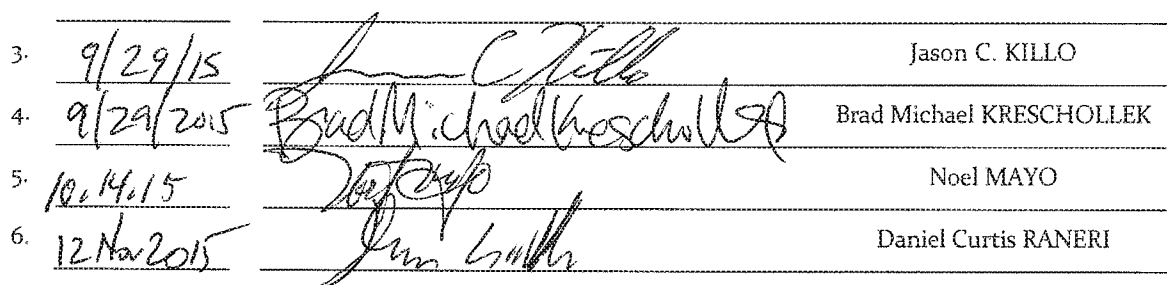 3. 9/29/15 Jason C Killo Jason C. KILLO
4. 9/29/2015 Brad Michael Kreschollek Brad Michael KRESCHOLLEK
5. 10.14.15 Noel Mayo Noel MAYO
6. 12 Nov 2015 Daniel Curtis RANERI